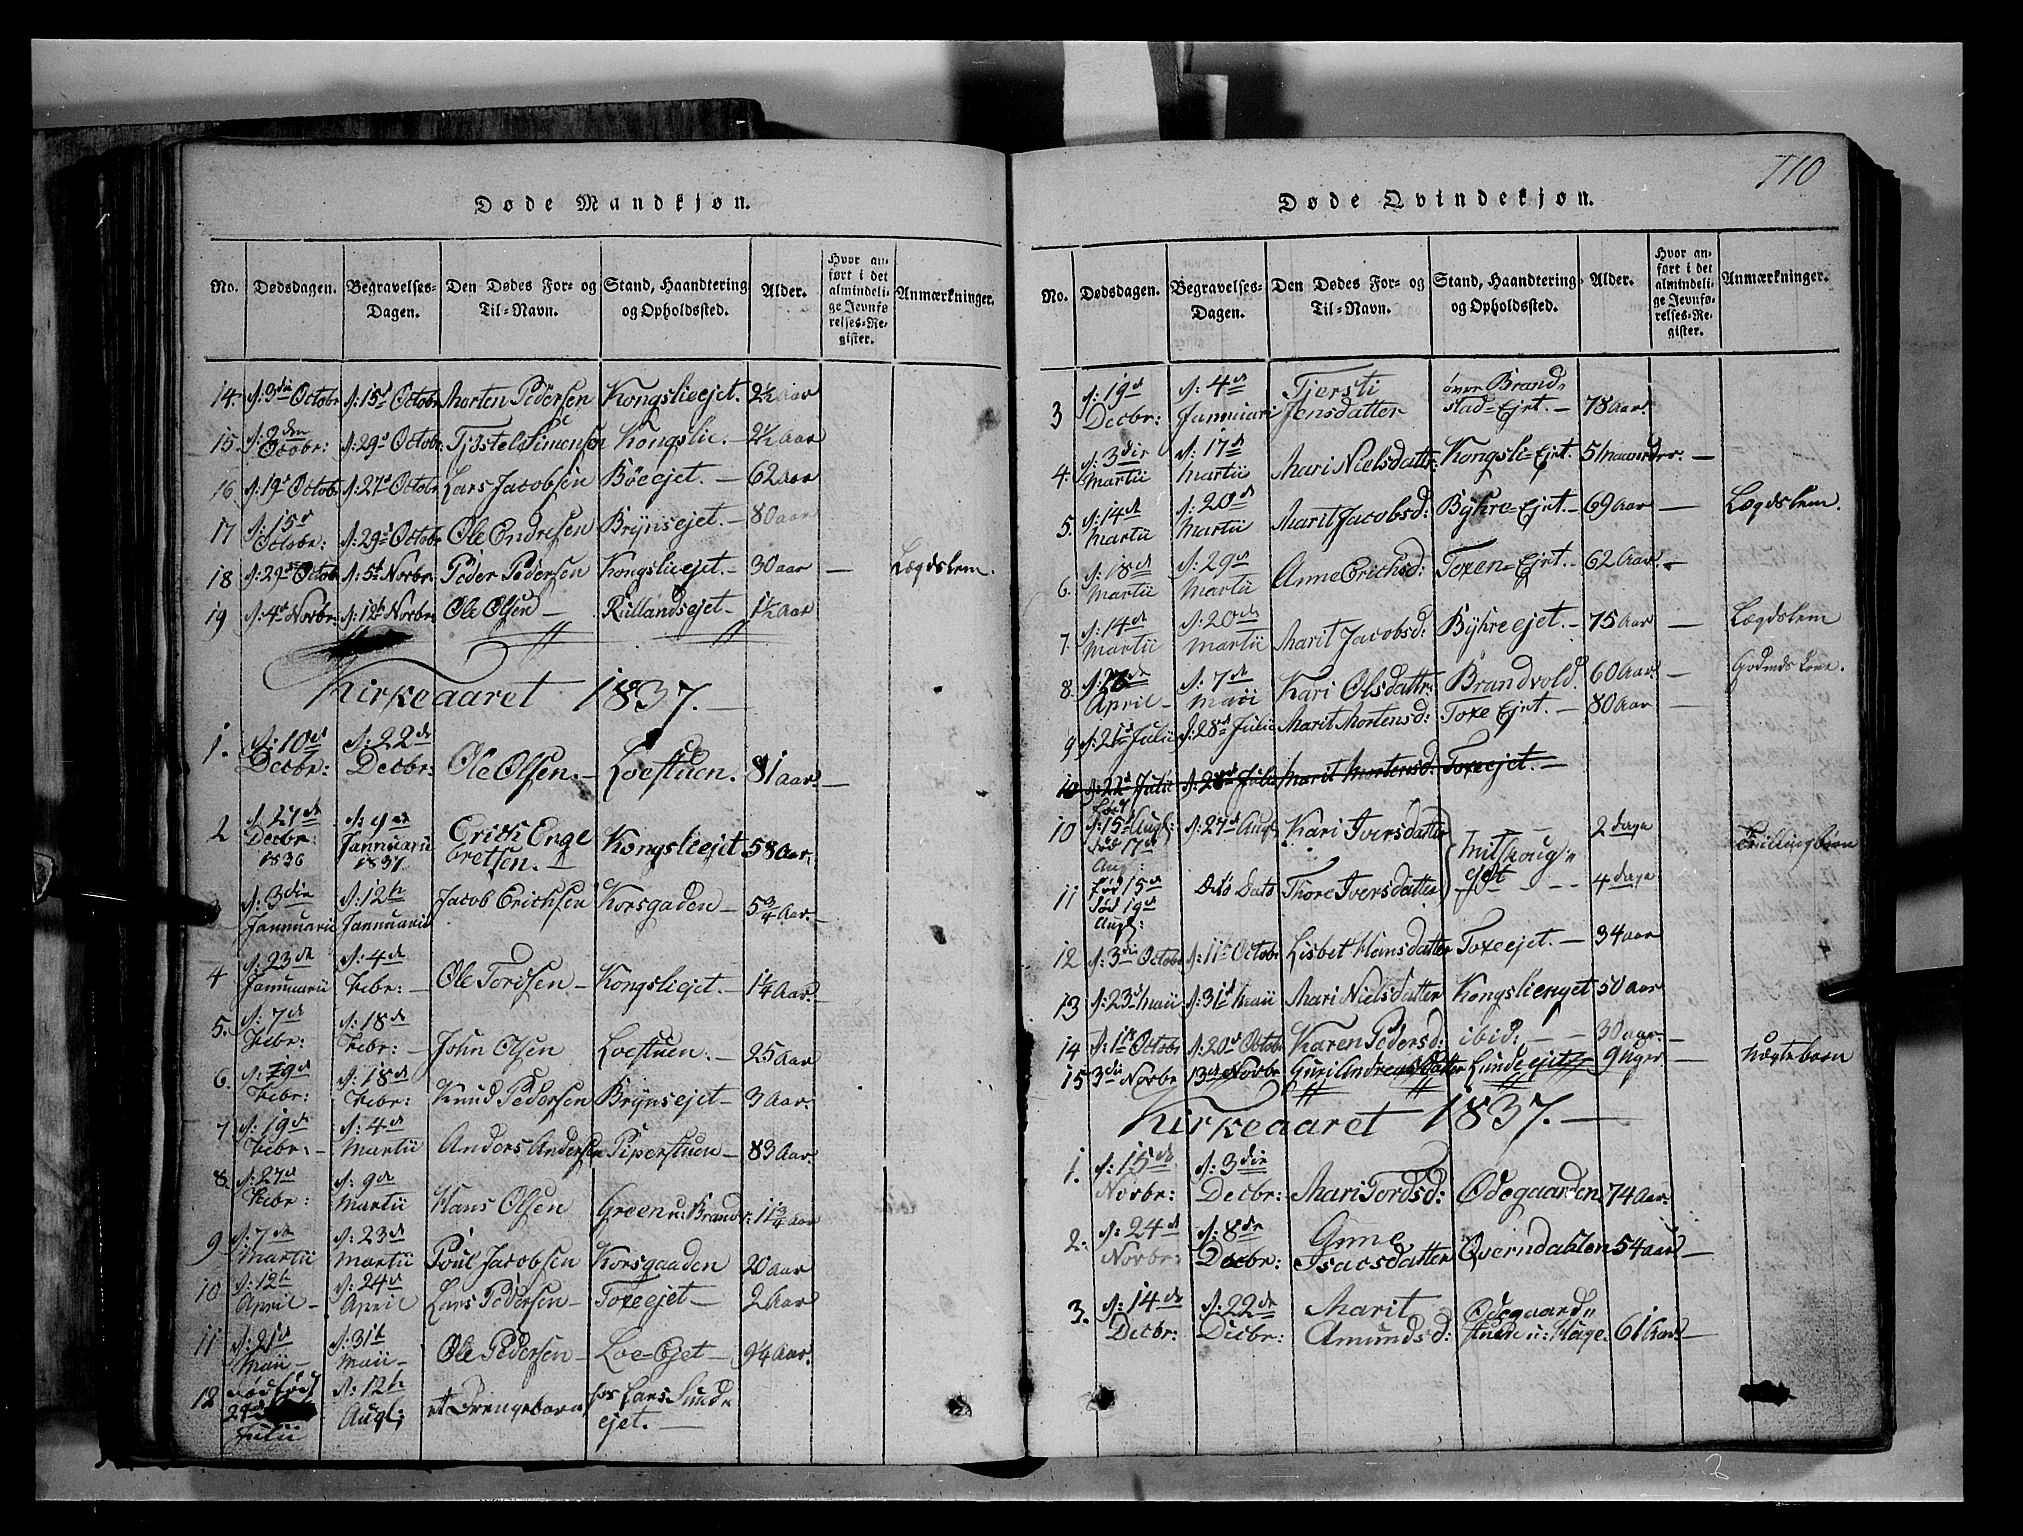 710
Døde Mandkjøn.
No. Dødsdagen. Begravelses-Dagen. Den Dødes For- og Til-Navn. Stand, Haandtering og Opholdssted. Alder. Hvor anført i det almindelige Jevnførelses-Register. Anmærkninger.
14. d: 3die Octobr d: 15d Octobr Morten Pedersen Kongslieejet. 2½ Aar
15. d: 2den Octobr: d: 29d Octobr: Simensen Kongslie. – 2½ Aar
16. d: 19d Octobr d: 27d Octobr Lars Jacobsen Bøeejet. – 62 Aar
17 d: 15d Octobr: d: 29d Octobr Ole Endresen Brynsejet. – 80 aar
18 d: 29d Octob d: 5t Novbr: Peder Pedersen Kongslieejet. – 30 aar – Lægdslem.
19 d: 4d Novbr: d: 12t Novbr: Ole Olsen – Rullandsejet – 1½ Aar
Kirkeaaret 1837. –
1. d: 10d Decbr: d: 22de Decbr: Ole Olsen. – Loestuen. 81 aar. –
2 d: 27de Decbr: 1836 d: Jannuarii 1837. Erich Engebretsen. Kongsliejet 58 Aar.
3 d: 3die Jannuarii d: 12te Jannuarii Jacob Erichsen Korsgaden – 5¾ Aar. –
4 d: 23de Jannuarii d: 4de Febr: – Ole Tordsen – Kongsliejet. – 1¼ Aar. –
5. d: 7de Febr: d: 18de Febr: – John Olsen Loestuen. – 25 Aar
6. d: 9de Febr: d: 18de Febr: Knud Pedersen Brynsejet – 3 Aar.
7 d: 19de Febr: – d: 4de Martii Anders Andersen Piperstuen – 83 Aar.
8. d: 27de Febr: d: 9de Martii Hans Olsen Green u: Brand: 11¾ Aar
9 d: 7de Martii d: 23de Martii Poul Jacobsen Korsgaaden 20 Aar
10 d: 12te April – d: 24de April Lars Pedersen – Toxeejet – 2 Aar
11 d: 21de Maii – d: 31te Maii – Ole Pedersen – Loe-Ejet – 9¼ Aar.
12 Dødfødt Julii d: 12te Augl: et Drengebarn hos Lars Lunde ejet. –
Døde Qvindekjøn.
No. Dødsdagen. Begravelses-Dagen. Den Dødes For- og Til-Navn. Stand, Haandtering og Opholdssted. Alder. Hvor anført i det almindelige Jevnførelses-Register. Anmærkninger.
3 d: 19de Decbr: d: 4de Jannuari Tjersti Jensdatter øvre Brandstad-Ejet. – 78 Aar.
4. d: 3die Martii d: 17de Martii Mari Nielsdatter: Kongsli-Ejet. 5 Maaneder. –
5. d: 14de Martii d: 20de Martii Marit Jacobsd: Bykre-Ejet. – 69 Aar – Lægdslem.
6. d: 18de Martii d: 29de Martii Anne Erichsd: Toxen-Ejet. – 62 Aar. –
7. d: 14de Martii d: 20de Martii Marit Jacobsd: Bykreejet. – 75 Aar – Lægdslem
8. d: 27de April – d: 7de Maii Kari Olsdatter: Brandvold. 60 Aar. –
9 d: 21d Julii d: 28d Julii Marit Mortensd: Toxe Ejet. – 80 Aar –
10 d: 22d Julii d: 28d Julii Marit Mortensd: Toxeejet. –
10 født d: 15d Augl: død 17de Aug: d: 27d Augl: Kari Iversdatter 2 dage Trillingbørn
11 født 15de død 19de Augl: Dito Dato Thore Iversdatter 4 dage
12 d: 3die Octobr d: 11te Octobr Lisbet Hansdatter Toxeejet. – 34 aar
13 d: 23d Maii d: 31d Maii Mari Nielsdatter Kongslieejet 50 Aar
14 d: 1te Octobr d: 20d Octobr Karen Pedersd: ibid: – 30 aar –
15 3die Novbr 13de Novbr Guri Andreasdatter Lunde ejet 9 Uger – Uægtebarn
Kirkeaaret 1837. –
1. d: 15de Novbr: d: 3die Decbr: Mari Tordsd: Ødegaarden 74 Aar.
2. d: 24de Novbr: d: 8de Decbr: Anne Isacsdatter Qverndahlen 54 aar. –
3. d: 14de Decbr: d: 22de Decbr: Marit Amundsd: Ødegaard u: Hage. 61 Aar. –